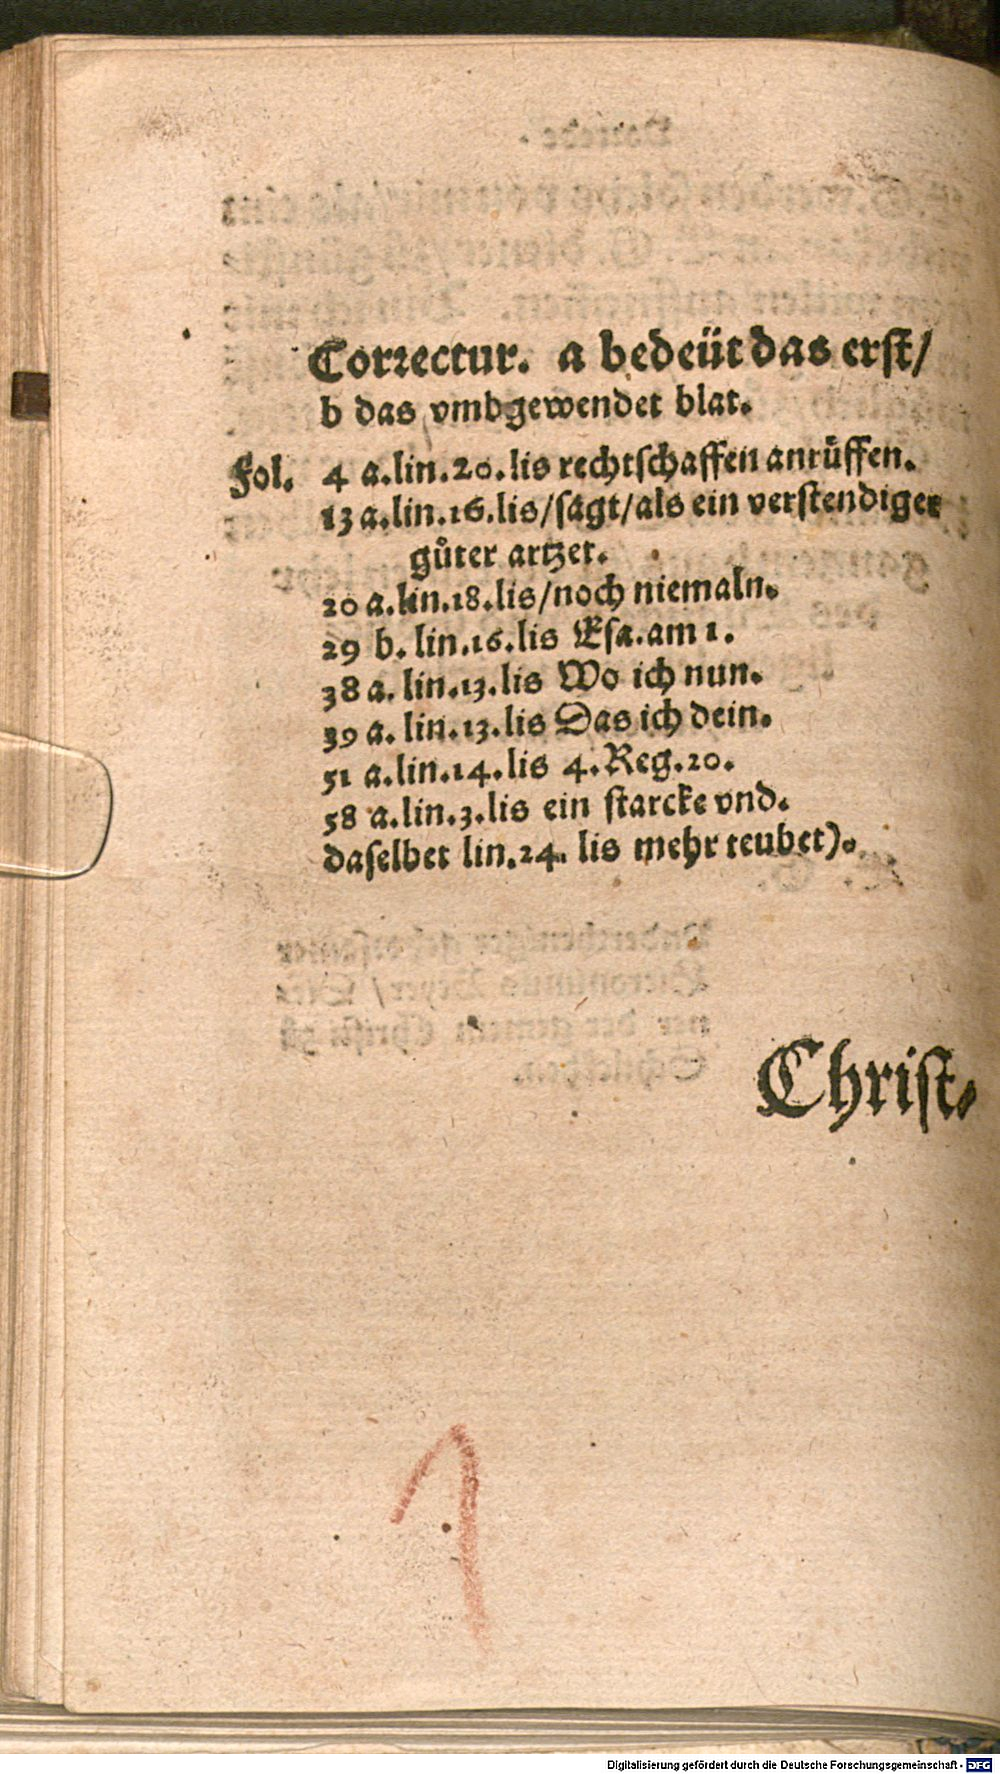 Correctur. a bedeüt das erst/
b das vmbgewendet blat.
Fol. 4 a.lin.20.lis rechtschaffen anrüffen.
13 a.lin.16.lis/sagt/als ein verstendiger
gůter artzet.
20 a.lin.18.lis/noch niemaln.
29 b. lin.16.lis Esa.am 1.
38 a. lin.13.lis Wo ich nun.
39 a. lin.13.lis Das ich dein.
51 a.lin.14.lis 4.Reg.20.
58 a.lin.3.lis ein starcke vnd.
daselbet lin.24. lis mehr teubet).
Christ-
1
Digitalisierung gefördert durch die Deutsche Forschungsgemeinschaft - DFG